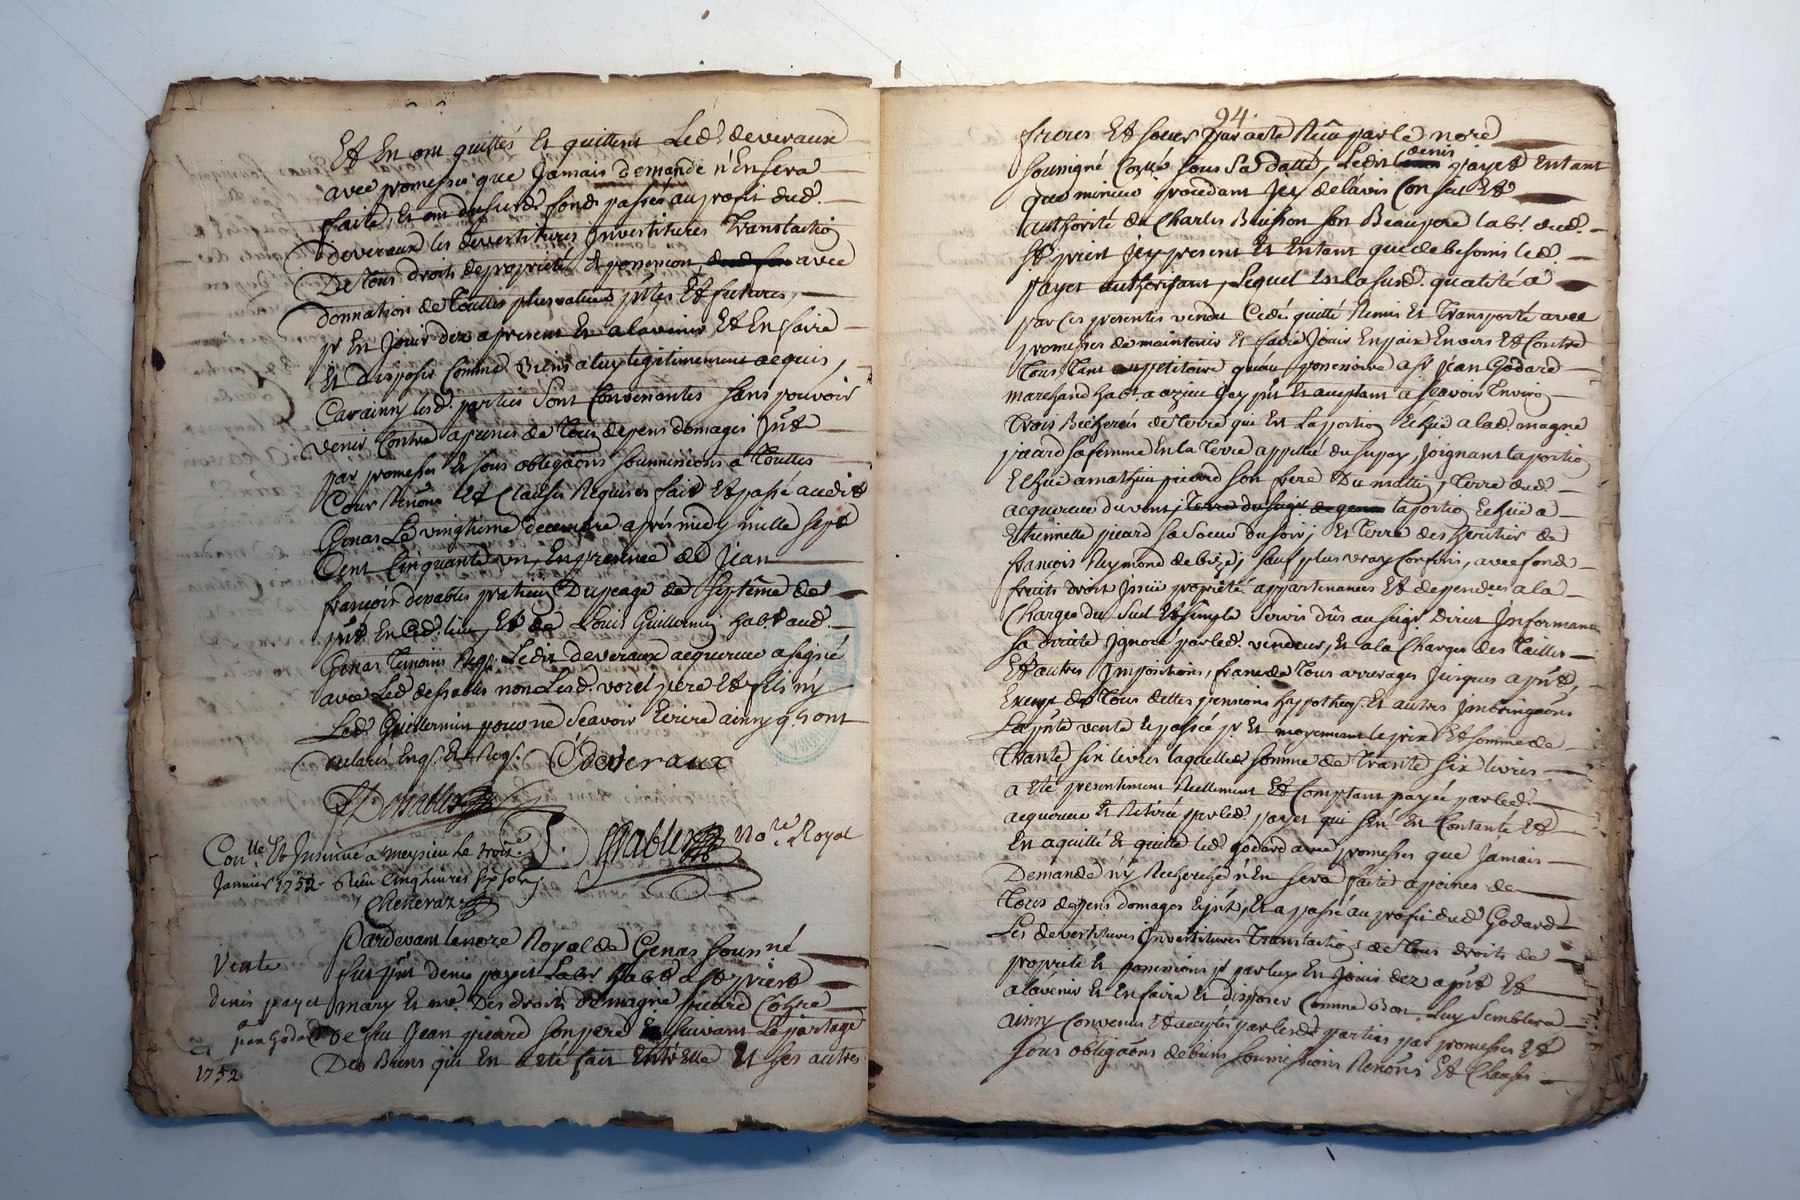 Et En ont quittés Et quittent Led. deveraux
avec promesses que Jamais demande n'En sera
faite, Et ont du susd. fond passés au profit dud.
Deveraux les devestitures Investitures Translatio
De tous droits de proprieté Et possession avec
donnation de touttes plus values pntes Et futures,
pr En Jouir dez a present Et a lavenir Et En faire
Et disposer Comme Biens a luy legitimement acquis,
Car ainsy lesd. parties Sont Convenantes Sans pouvoir
venir Contre a peines de tous depens domages Intt
par promesses Et sous obligaons soumissions a touttes
Cour Renons Et Clauses Requises fait Et passé audit
Genas Le vingtieme decembre après midy mille sept
Cent Cinquante un, En presence de Jean
françois desables praticien Du peage de Septême de
pnt En Ced. lieu, Et de Louis Guillermin habt aud.
Genas temoins Reqs. Ledit deveraux acquereur a signé
avec Led. desables non Lesd. vorel pere Et fils n'y
Led. Guillermin pour ne Scavoir Ecrire ainsy qs ont
declarés Enqs. Et Reqs. C deveraux
Desables
Conlle Et Insinué a meysieu le trois. Desables No.re Royal
Janvier 1752. Reçu Cinq livres six sols
Chetteraz
Pardevant le nore Royal de Genas Sousné
Vente fut pnt denis payet labr habt a St priest
denis payet mary Et me. Des droits de magne picard Cohre
pr Jean Godard De feu Jean picard Son pere Et suivant Le partage
Des Biens qui En a Eté fait Entr'Elle Et Ses autres
1752
94.
freres Et soeur par acte Reçu par le nore
sousigné Collé sous Sa datte, Ledit denis payet En tant
que mineur procedant Icy de lavis Conseil Et
authorité de Charles Buisson son Beaupere labr. dud.
St priest Icy present Et En tant que de besoins led.
payet authorisant, Lequel En la susd. qualité a
par Ces presentes vendu Cedé quitté Remis Et transporté avec
promesses de maintenir Et faire Jouir En paix Envers Et Contre
tous tant au petitoire qu'au possessoire a Sr Jean Godard
marchand habt a azieu Icy pnt Et acceptant a scavoir Environ
trois Bicherées de terre qui Est la portion Echüe a lad. magne
picard sa femme En la terre appellée du supay, Joignant la portio
Echüe a mathieu picard son frere Du matin, terre dud.
acquereur du vent, la portio Echüe a
Ethiennette picard sa Soeur du soir, Et terre des heritier de
françois Reymond de bize, sauf plus vrays Confins, avec fond
fruits droit Issüe proprieté appartenances Et dependces a la
Charges du Seul Et simple Servis dûs au seigr Direct Informant
sa directe Ignoré par led. vendeur, Et a la Charges des tailles
Et autres Impositions, franc de tous arrerages Jusques a pnt,
Exempt de tous dettes pensions hypotheqs. Et autres Imbringaons
La pnte vente Ce passée pr Et moyennant le prix Et somme de
trante six livres laquelle somme de trante six livres
a Eté presentement Reellement Et Comptant payée par led.
acquereur Et Retirée par led. payet qui s'en Est Contanté Et
En a quitté Et quitte led. godard avec promesses que Jamais
Demande n'y Recherche n'En sera faite a peines de
tous depens domages Et Int, Et a passé au profit dud. Godard
Les devestitures Investitures translations de tous droits de
proprieté Et possessions pr par luy En Jouir dez a pnt Et
a lavenir Et En faire Et disposer Comme Bon Luy Semblera
ainsy Convenus Et acceptés par lesd. parties par promesses Et
sous obligaons de biens soumissions Renons Et Clauses